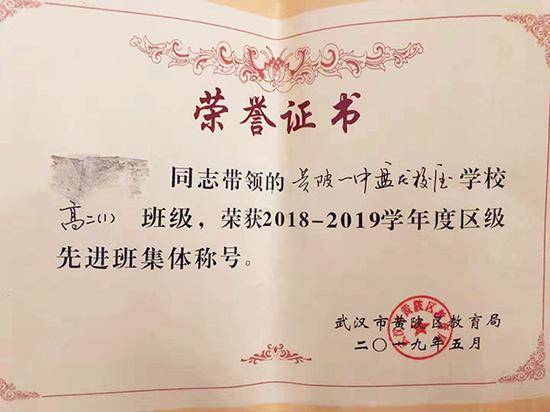 荣誉证书
同志带领的黄陂一中盘龙校区学校
高二(1)班级，荣获2018-2019学年度区级
先进班集体称号。
武汉市黄陂区教育局
二〇一九年五月